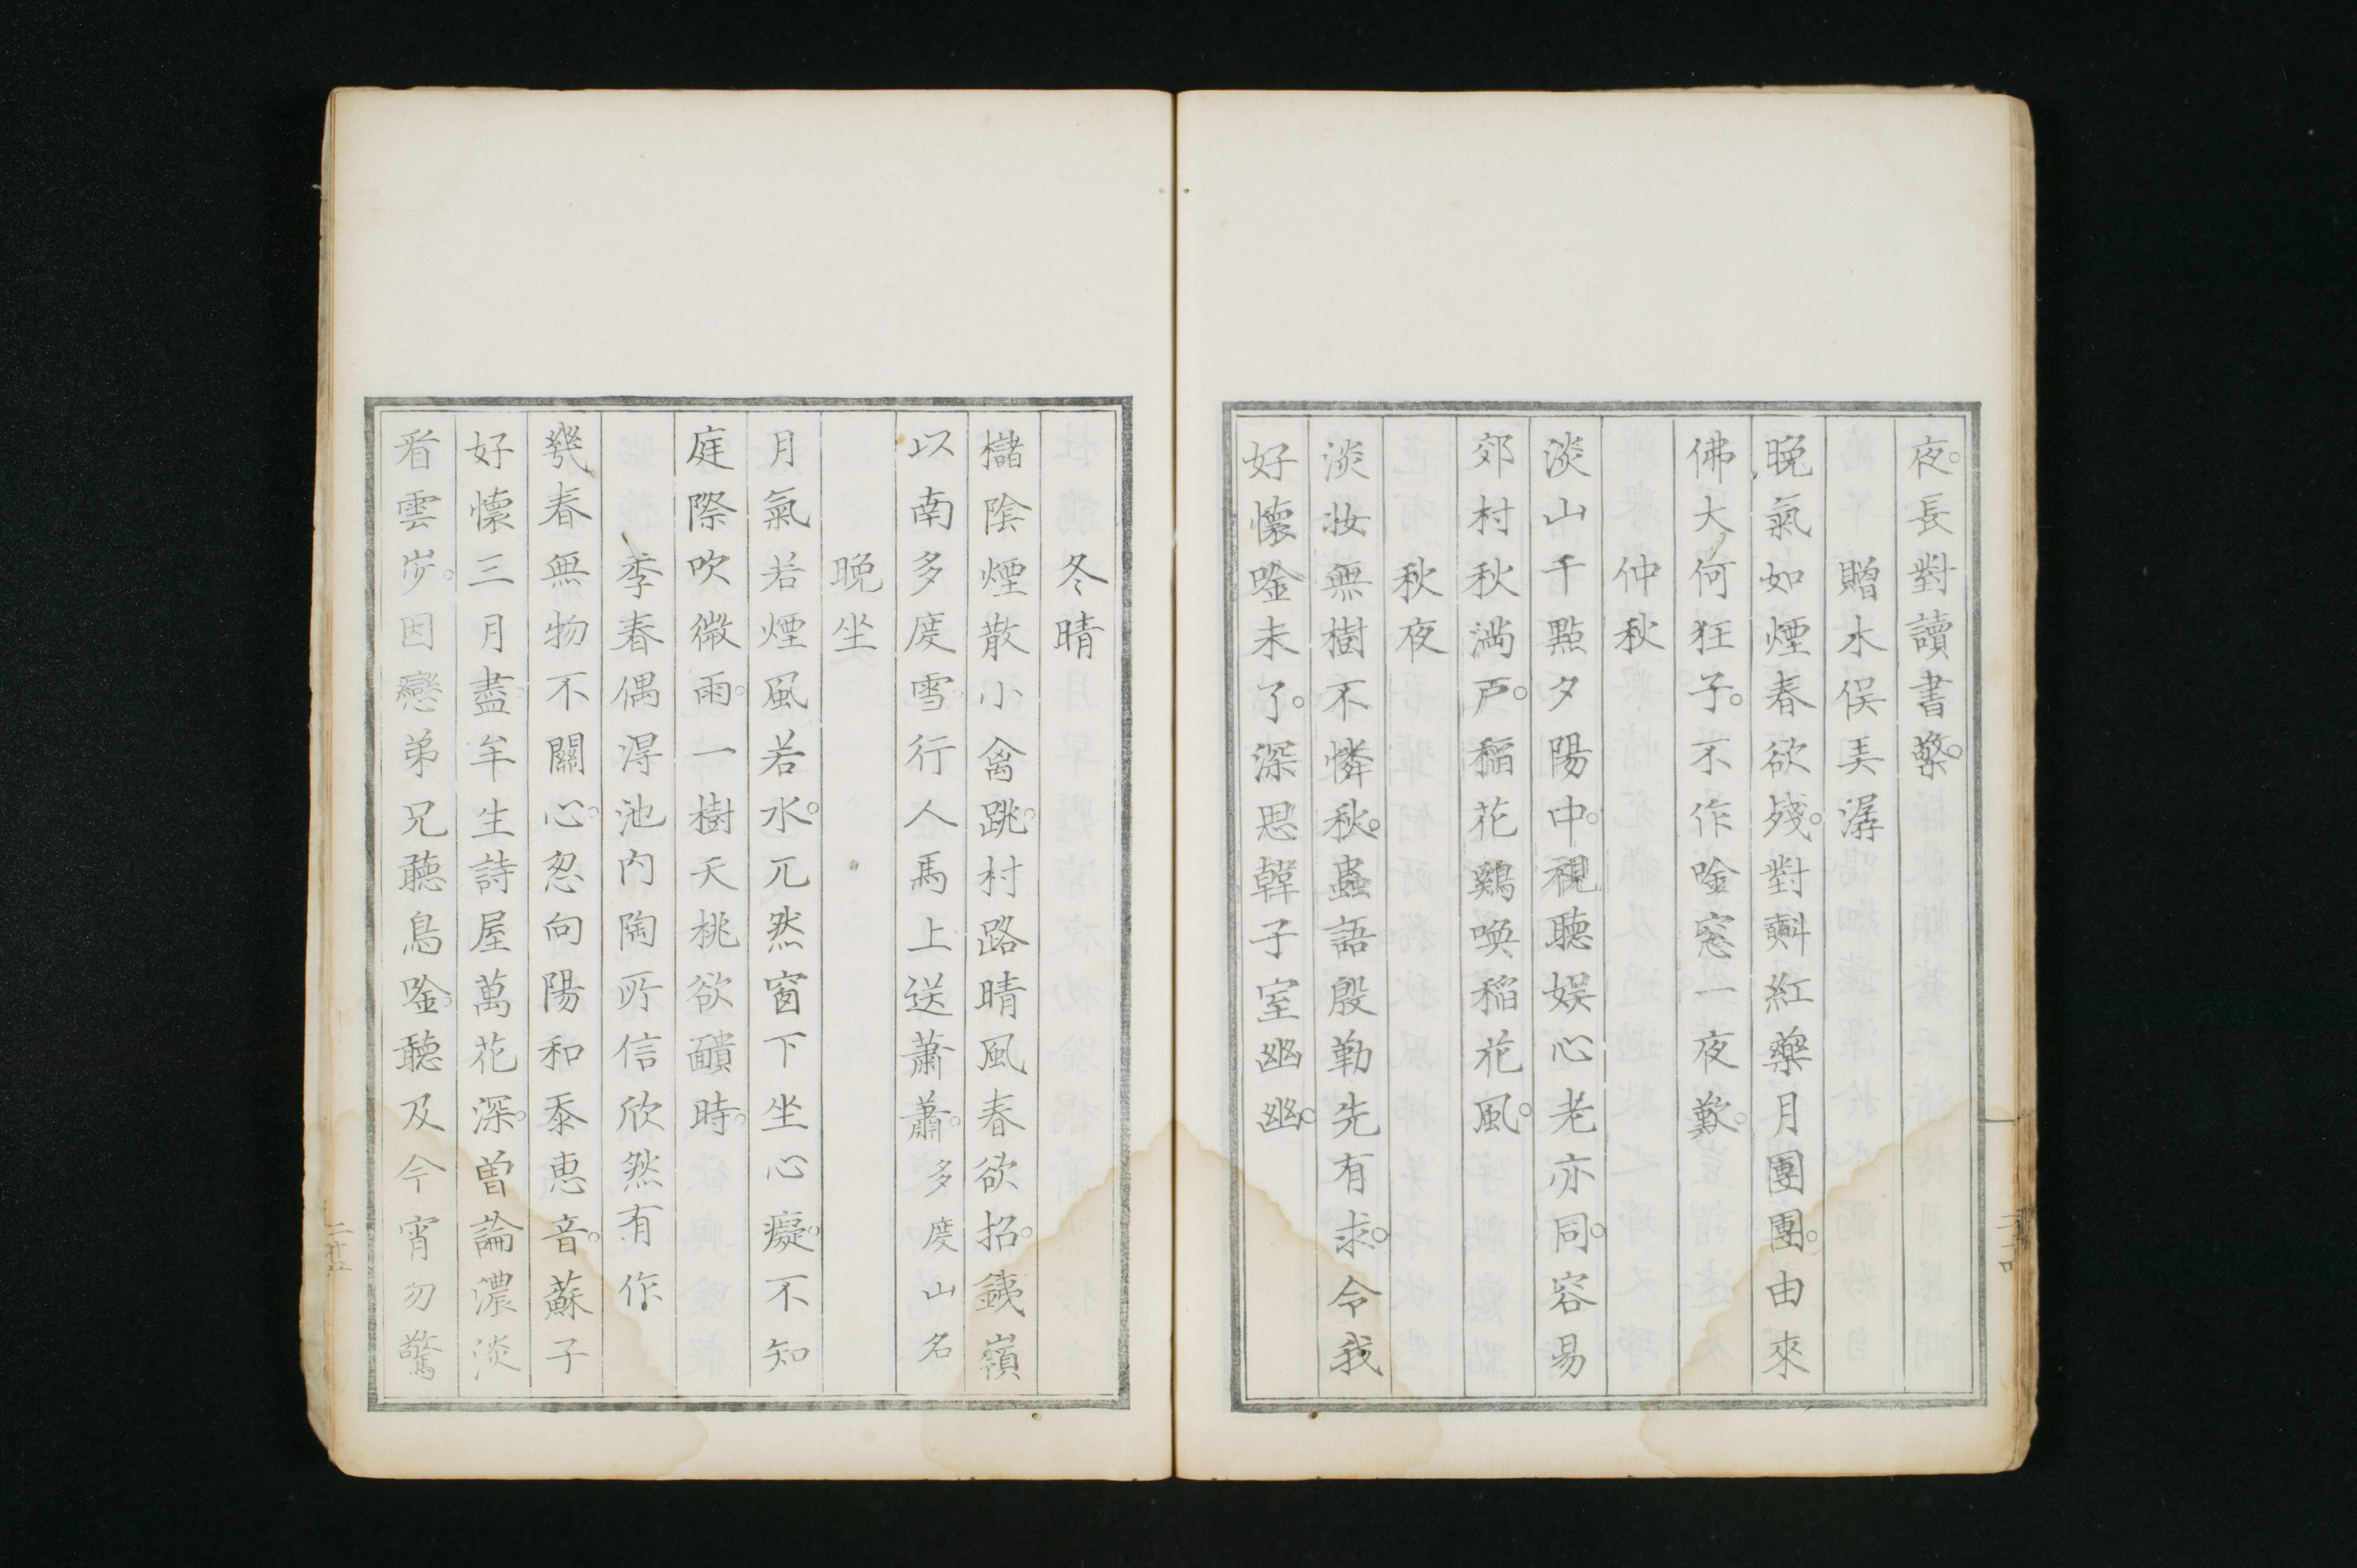 夜。長對讀書檠。
贈水俣美潺
晚氣如煙春欲殘。對㪺紅藥月團團。由來
佛大何狂子。不作唫窓一夜歎。
仲秋
淡山千點夕陽中。視聽娛心老亦同。容易
郊村秋滿戸。稻花鷄喚稻花風。
秋夜
淡妝無樹不憐秋。蟲語殷勤先有求。令我
好懷唫未了。深思韓子室幽幽。
冬晴
櫧陰煙散小禽跳。村路晴風春欲招。銕嶺
以南多度雪。行人馬上送蕭蕭。多度山名
晚坐
月氣若煙風若水。兀然窗下坐心癡。不知
庭際吹微雨。一樹夭桃欲靧時。
季春偶淂池內陶所信欣然有作
幾春無物不關心。忽向陽和黍惠音。蘇子
好懷三月盡。羊生詩屋萬花深。曽論濃淡
看雲歩。因戀弟兄聽鳥唫。聽及今宵勿驚